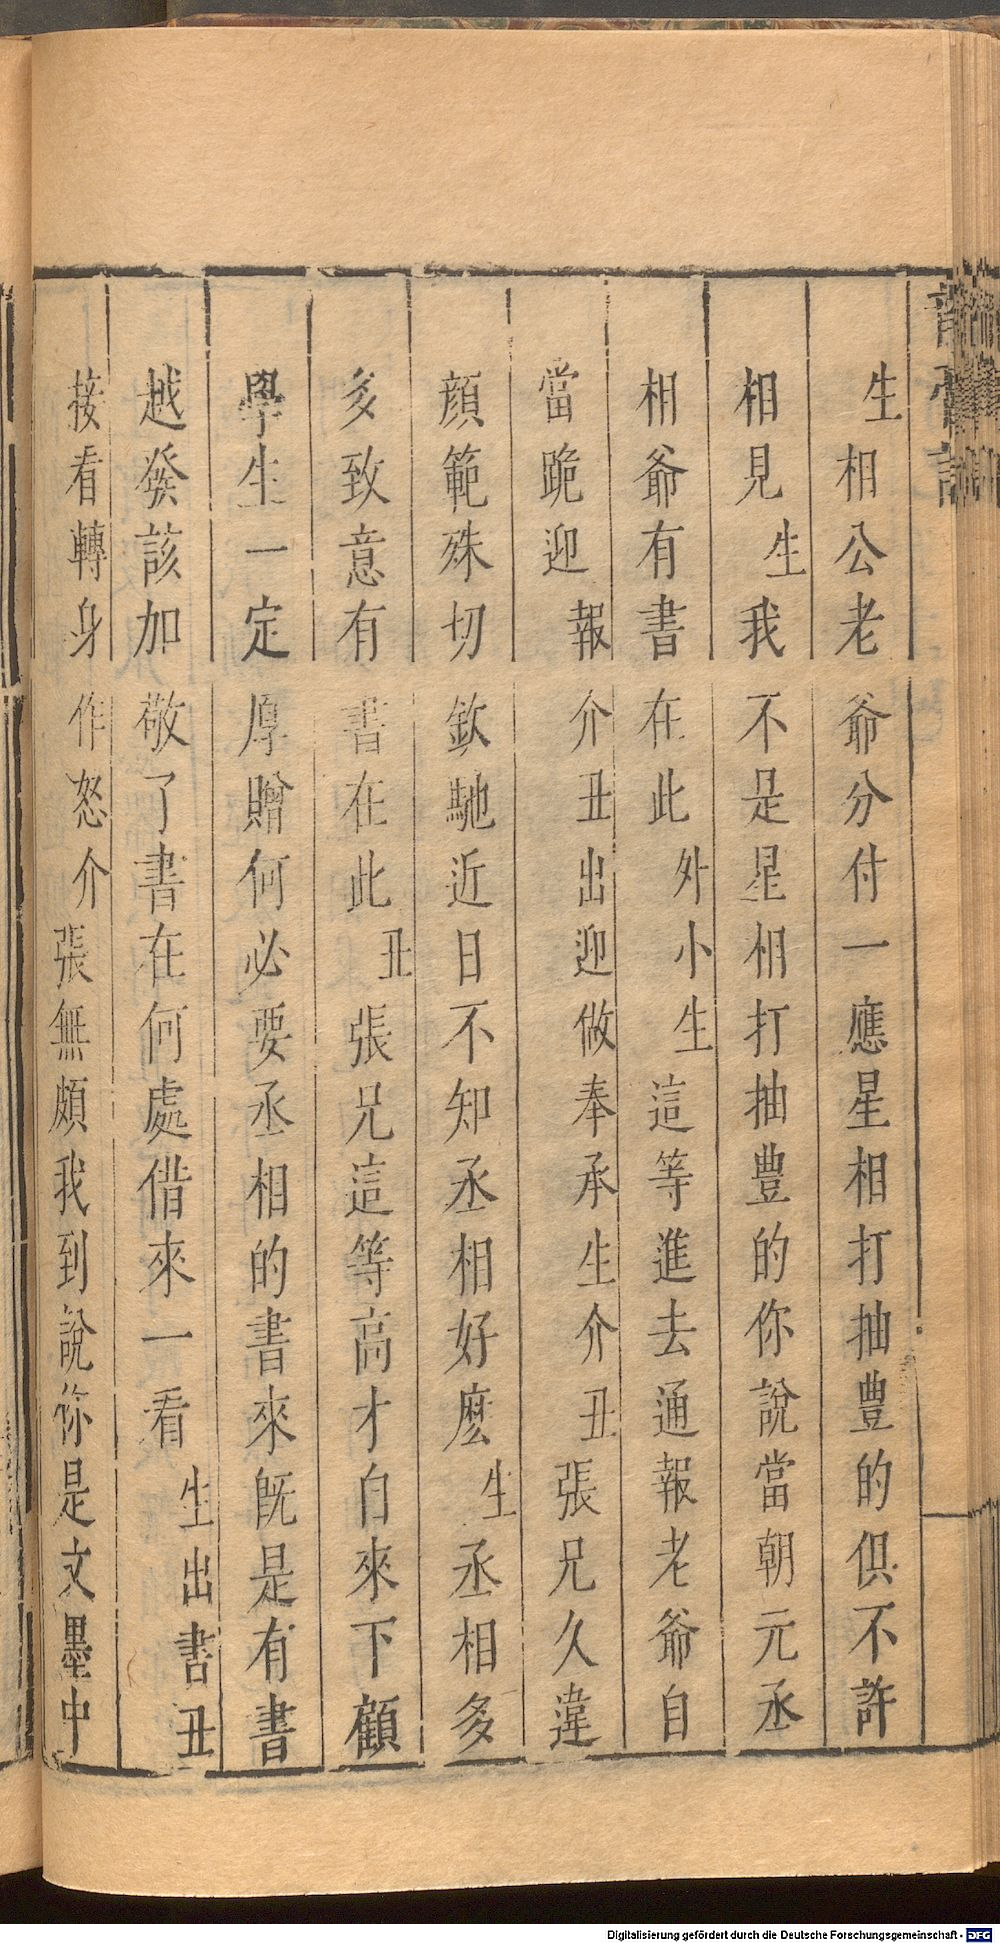 生相公老爺分付一應星相打抽豊的俱不許
相見生我不是星相打抽豊的你說當朝元丞
相爺有書在此外小生這等進去通報老爺自
當跪迎報介丑出迎做奉承生介丑張兄久違
顔範殊切欽馳近日不知丞相好麽生丞相多
多致意有書在此丑張兄這等高才自來下顧
學生一定厚贈何必要丞相的書來旣是有書
越發該加敬了書在何處借來一看生出書丑
接看轉身作怒介張無頗我到說你是文墨中
Digitalisierung gefördert durch die Deutsche Forschungsgemeinschaft - DFG